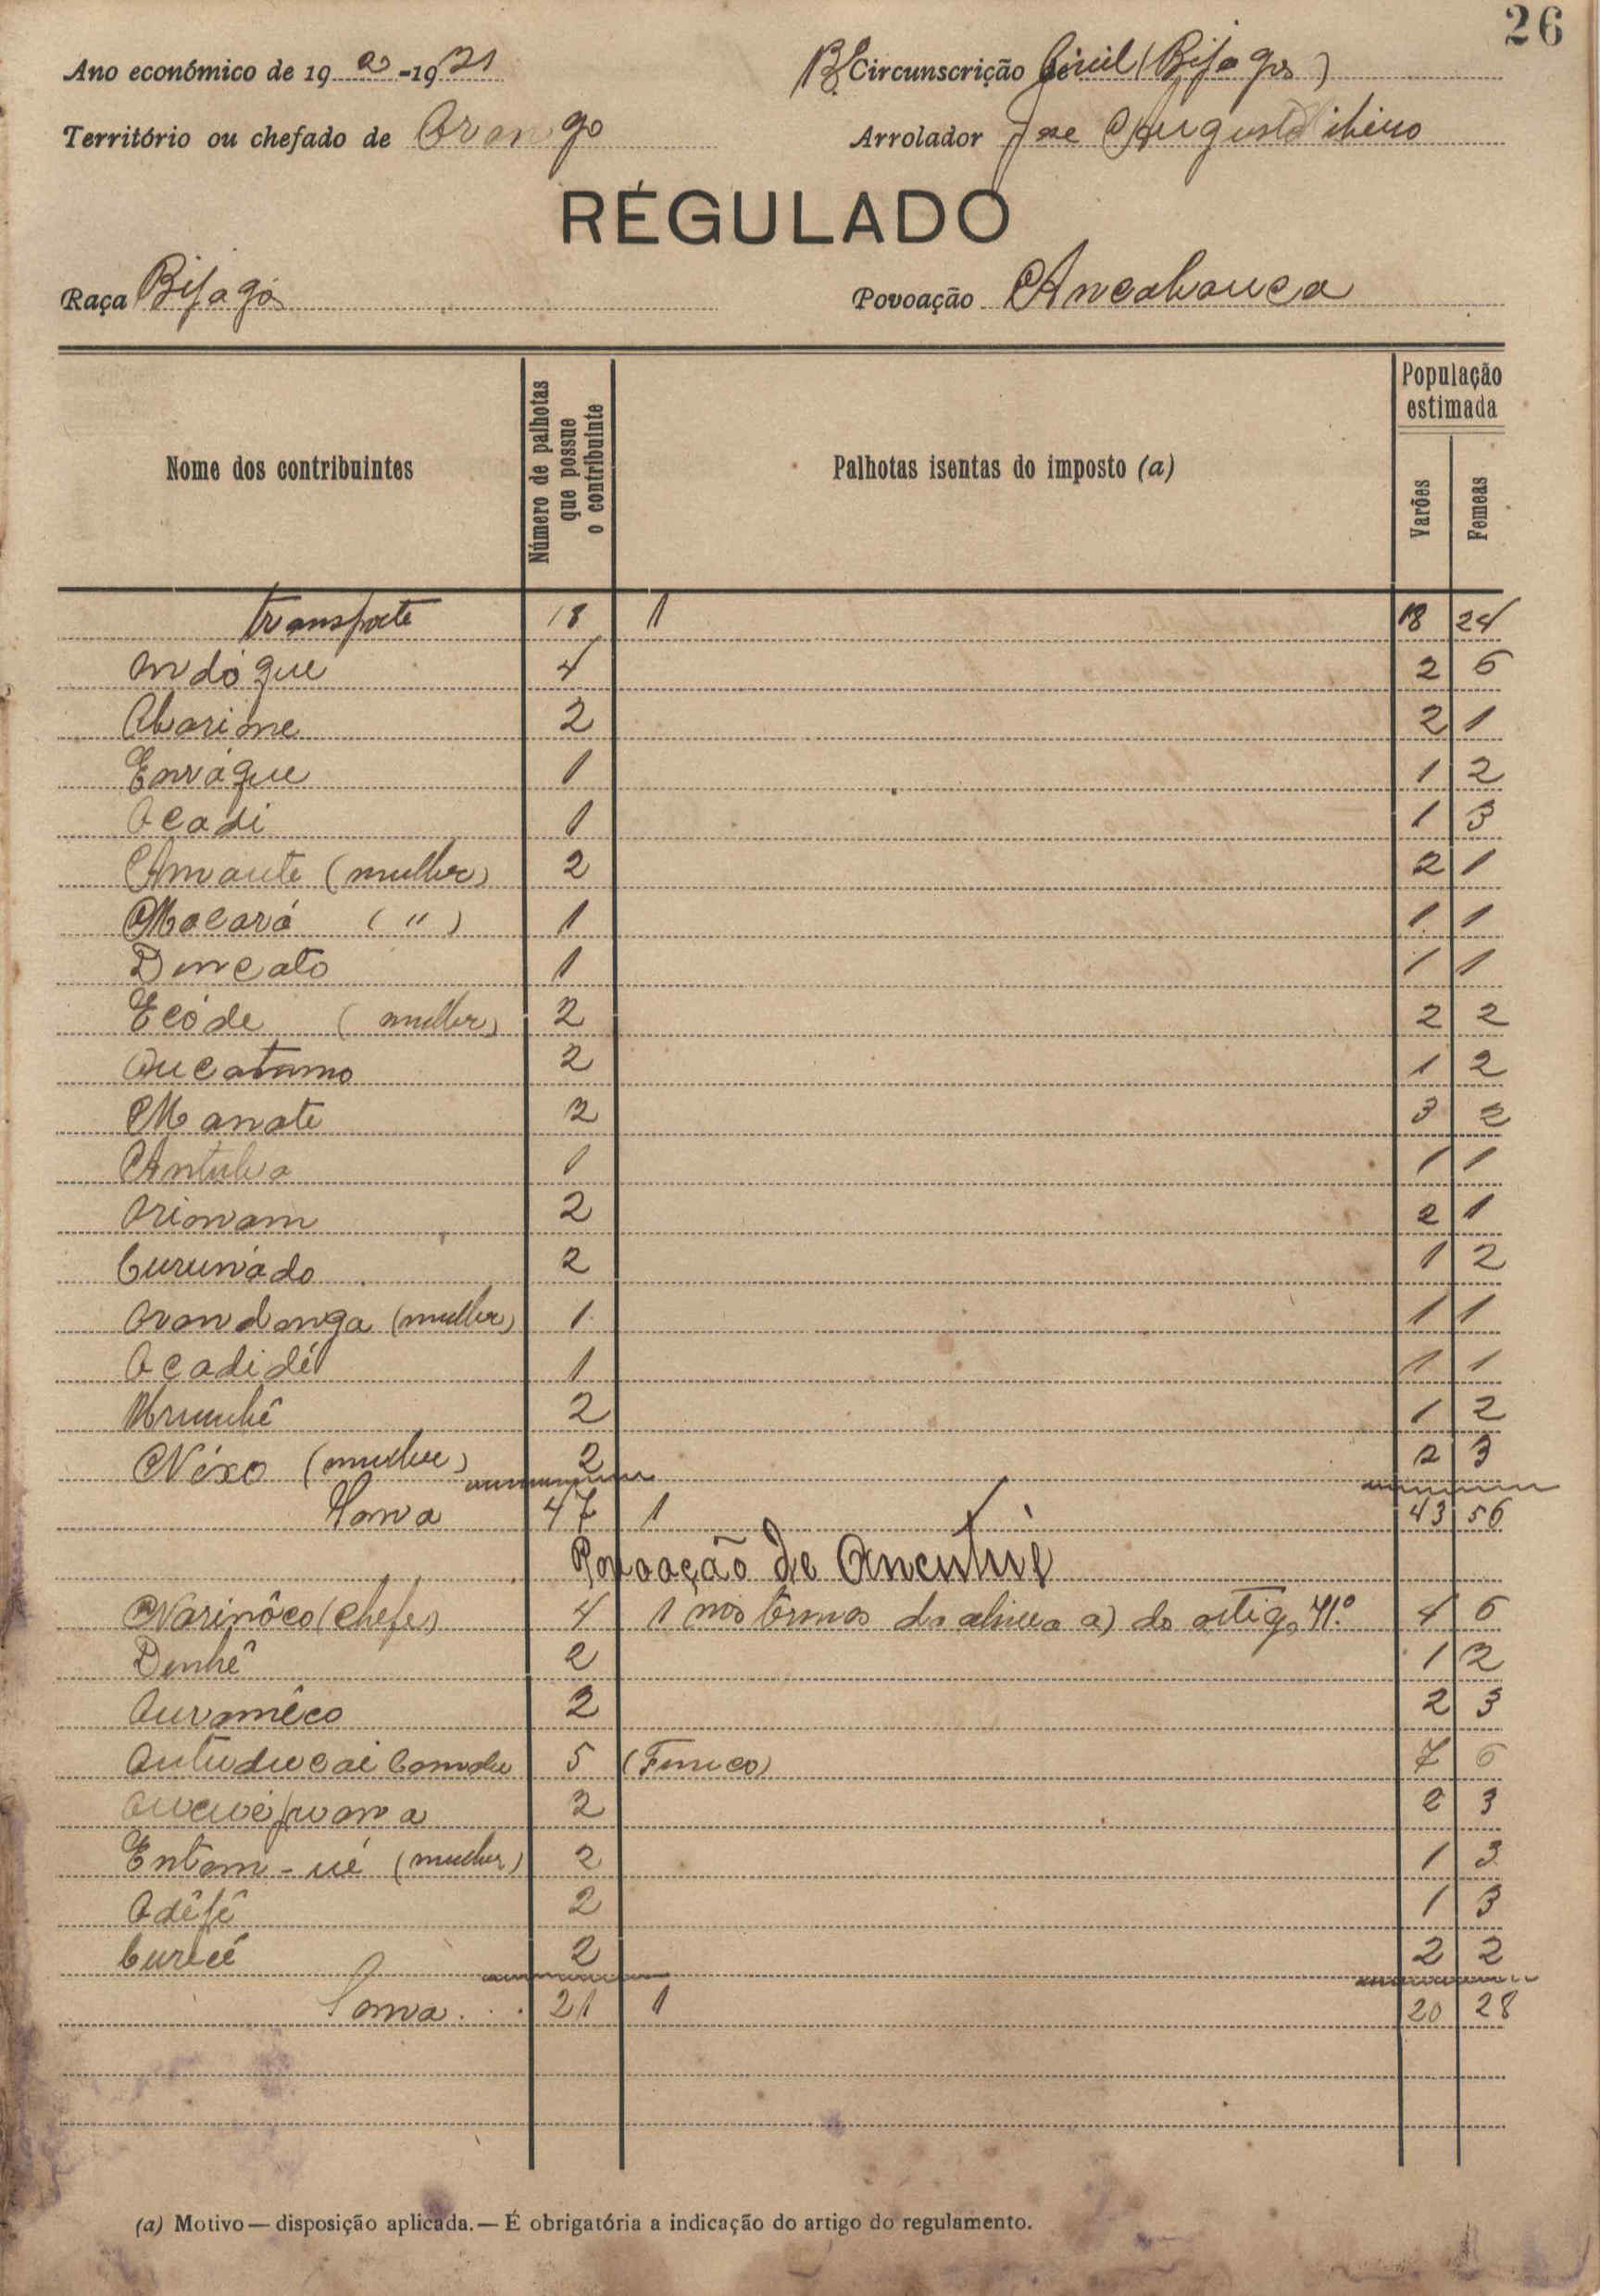 26
Ano económico de 1920-1921 Circunscrição Civil (Bijagos)
Território ou chefado de Orango Arrolador José Augusto
RÉGULADO
Raça Bijagós Povoação Ancabouca
População estimada
Nome dos contribuintes Número de palhotas que possue o contribuinte Palhotas isentas do imposto (a) Varões Femeas
Transporte 18 1 18 24
Ondóque 4 2 6
Abarime 2 2 1
Enváque 1 1 2
Ocadi 1 1 3
(mulher) 2 2 1
Macará ( " ) 1 1 1
Dincato 1 1 1
Ecóde (mulher) 2 2 2
Oucatamo 2 1 2
Manate 2 3 2
Antuba 1 1 1
Orionam 2 2 1
Curunádo 2 1 2
Orandanga (mulher) 1 1 1
Ocadidé 1 1 1
2 1 2
Néxo (mulher) 2 2 3
Soma 47 1 43 56
Povoação de Ancutué
Narinôco (chefe) 4 1 nos termos da alinea a) do artigo 41.º 4 6
Denhê 2 1 2
Ouramêco 2 2 3
5 7 6
2 2 3
Entam-ué (mulher) 2 1 3
Odêfê 2 1 3
2 2 2
Soma... 21 1 20 28
(a) Motivo — disposição aplicada. — É obrigatória a indicação do artigo do regulamento.